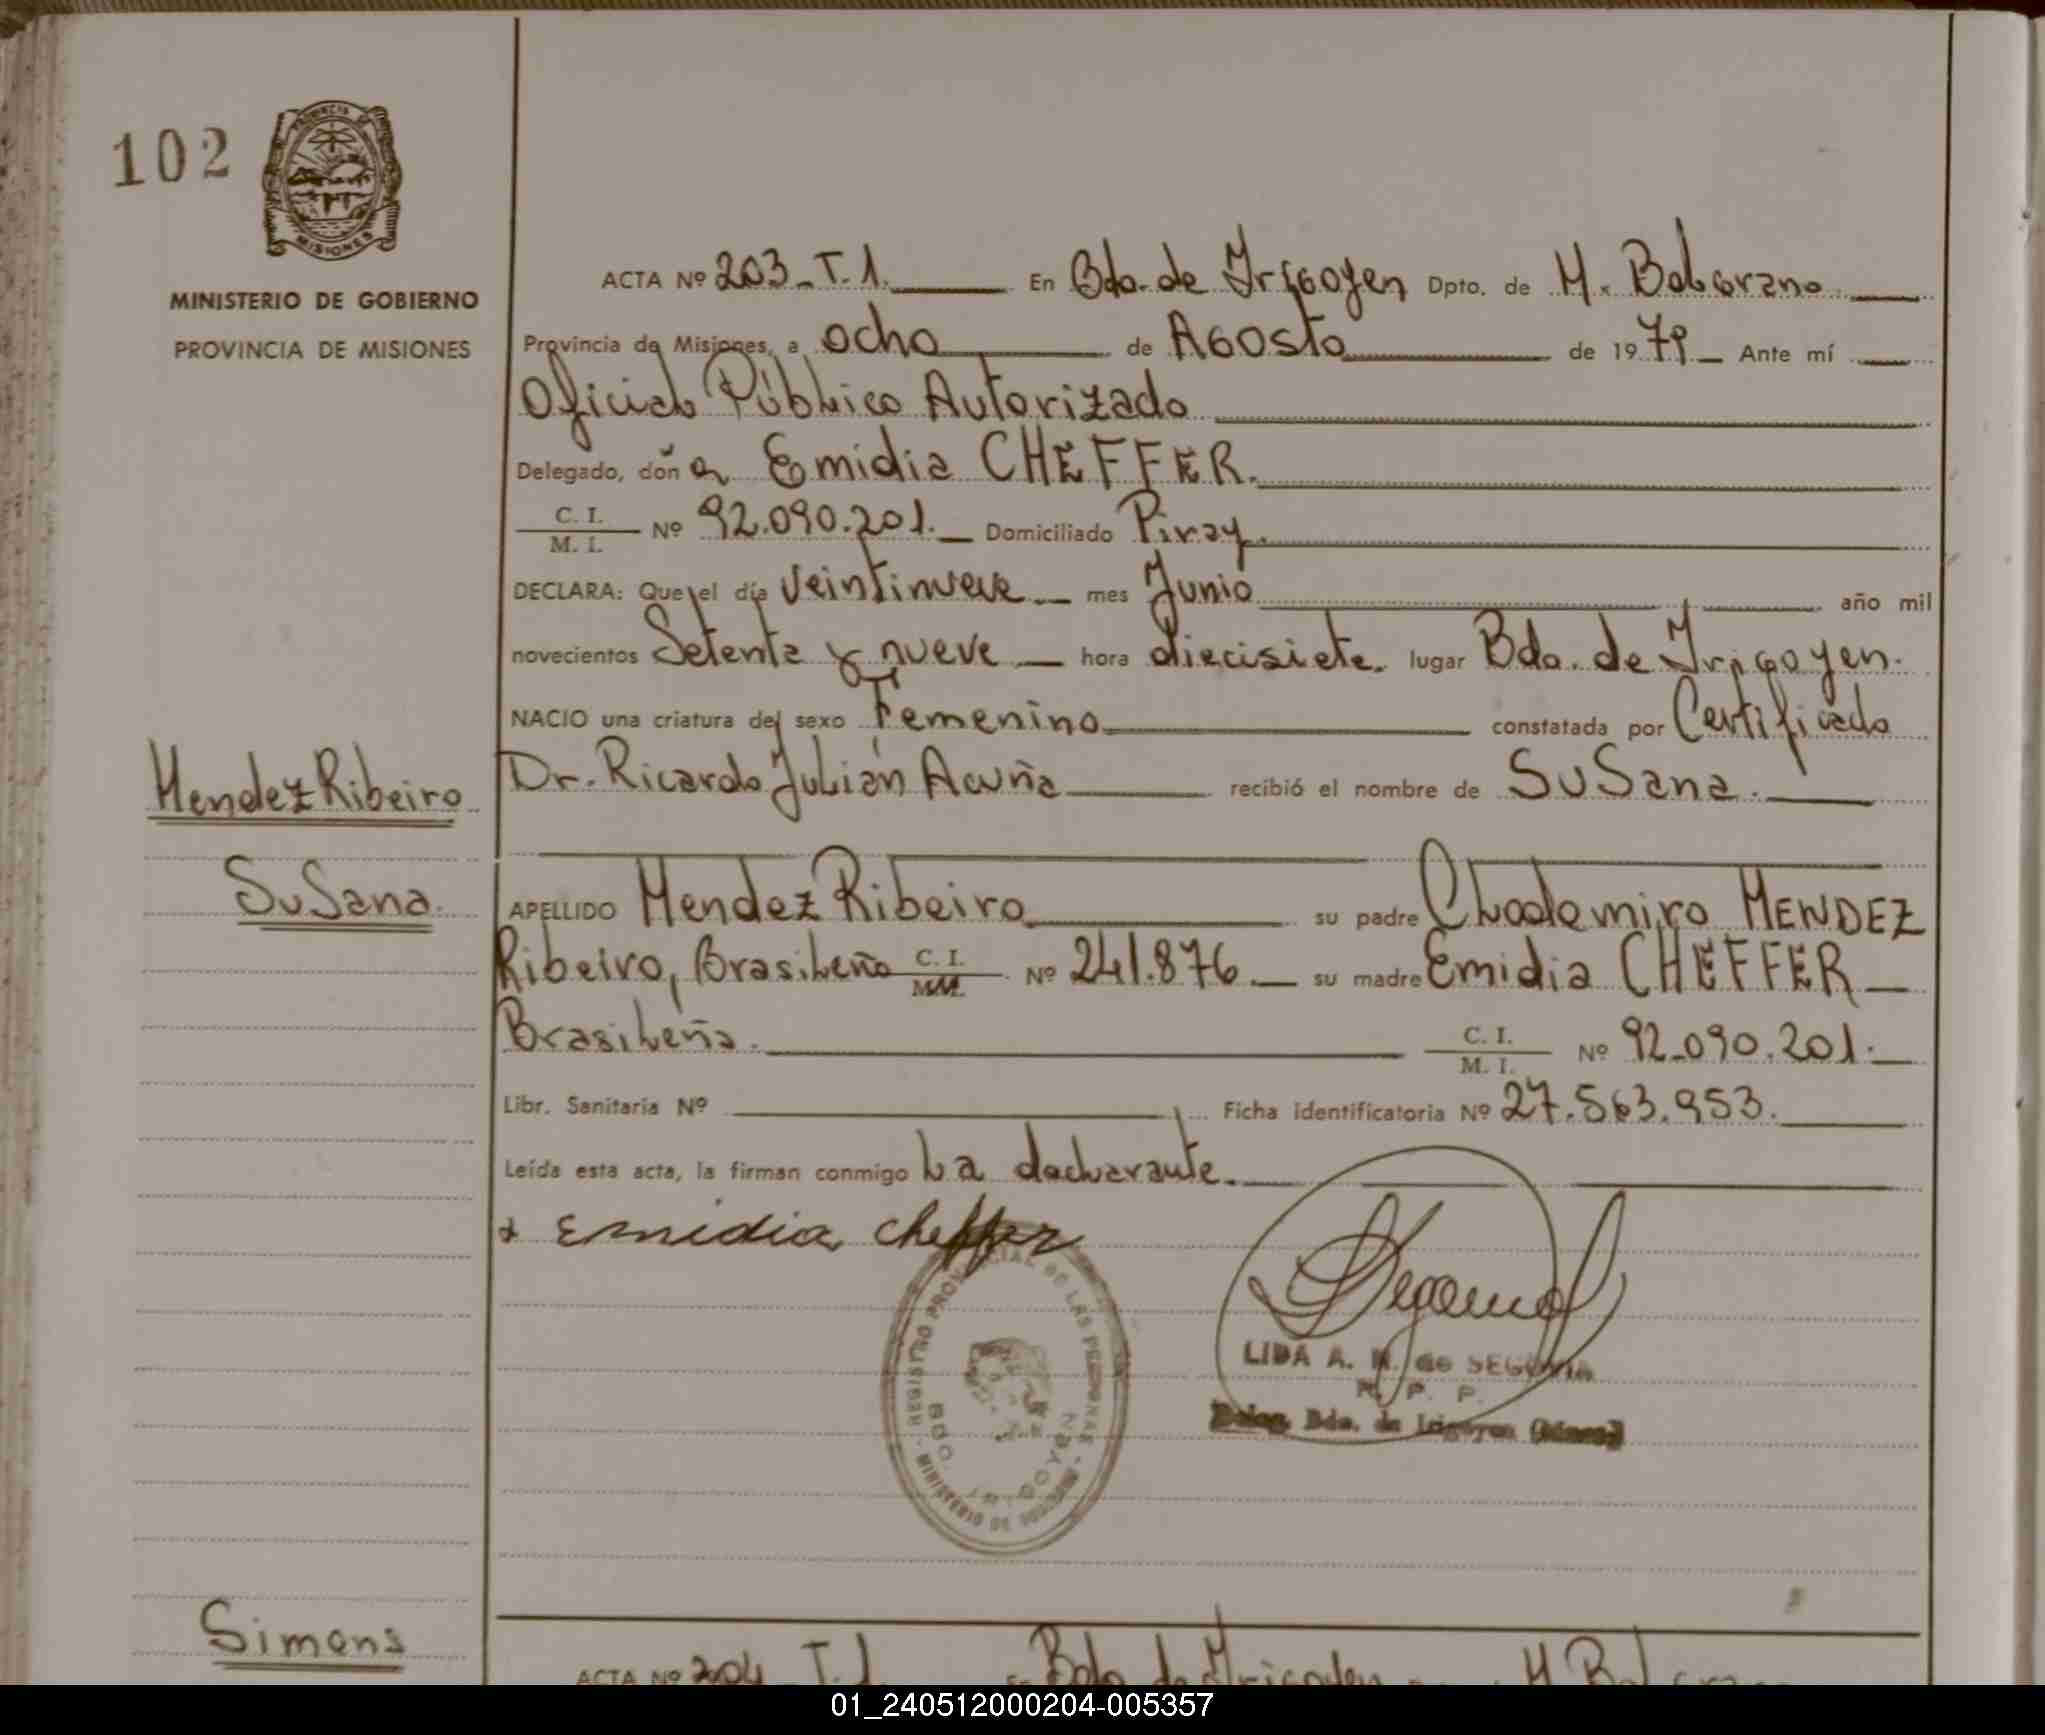 102
PROVINCIA DE
MISIONES
MINISTERIO DE GOBIERNO
PROVINCIA DE MISIONES
ACTA Nº 203-T.1. En Bdo. de Irigoyen Dpto. de M. Belgrano
Provincia de Misiones, a ocho de Agosto de 1979 Ante mí
Oficial Público Autorizado
Delegado, doña Emidia CHEFFER.
C. I. / M. I. Nº 92.090.201. Domiciliado Piray.
DECLARA: Que el día veintinueve mes Junio año mil
novecientos Setenta y nueve hora diecisiete. lugar Bdo. de Irigoyen.
NACIO una criatura del sexo Femenino constatada por Certificado
Dr. Ricardo Julián Acuña recibió el nombre de Susana.
Mendez Ribeiro
Susana.
APELLIDO Mendez Ribeiro su padre Clodemiro MENDEZ
Ribeiro, Brasileño C. I. Nº 241.876. su madre Emidia CHEFFER
Brasileña. C. I. / M. I. Nº 92.090.201.
Libr. Sanitaria Nº Ficha identificatoria Nº 27.563.953.
Leída esta acta, la firman conmigo La declarante.
x Emidia Cheffer
REGISTRO PROVINCIAL DE LAS PERSONAS - MINISTERIO DE GOBIERNO
BDO. IRIGOYEN
LIDA A. N. de SEGOVIA
R. P. P.
Deleg. Bdo. de Irigoyen (Mnes.)
Simons
ACTA Nº 204 T.1 En Bdo de Irigoyen M. Belgrano
01_240512000204-005357